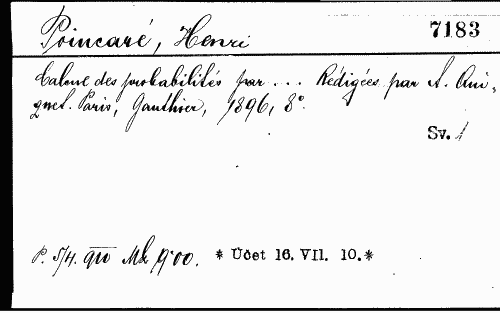 Poincaré, Henri 7183
Calcul des probabilités par ... Rédigées par A. Qui-
quet. Paris, Gauthier, 1896, 8°.
Sv. 1
P. 5/4. 910 Mk 9.00. * Účet 16. VII. 10.*